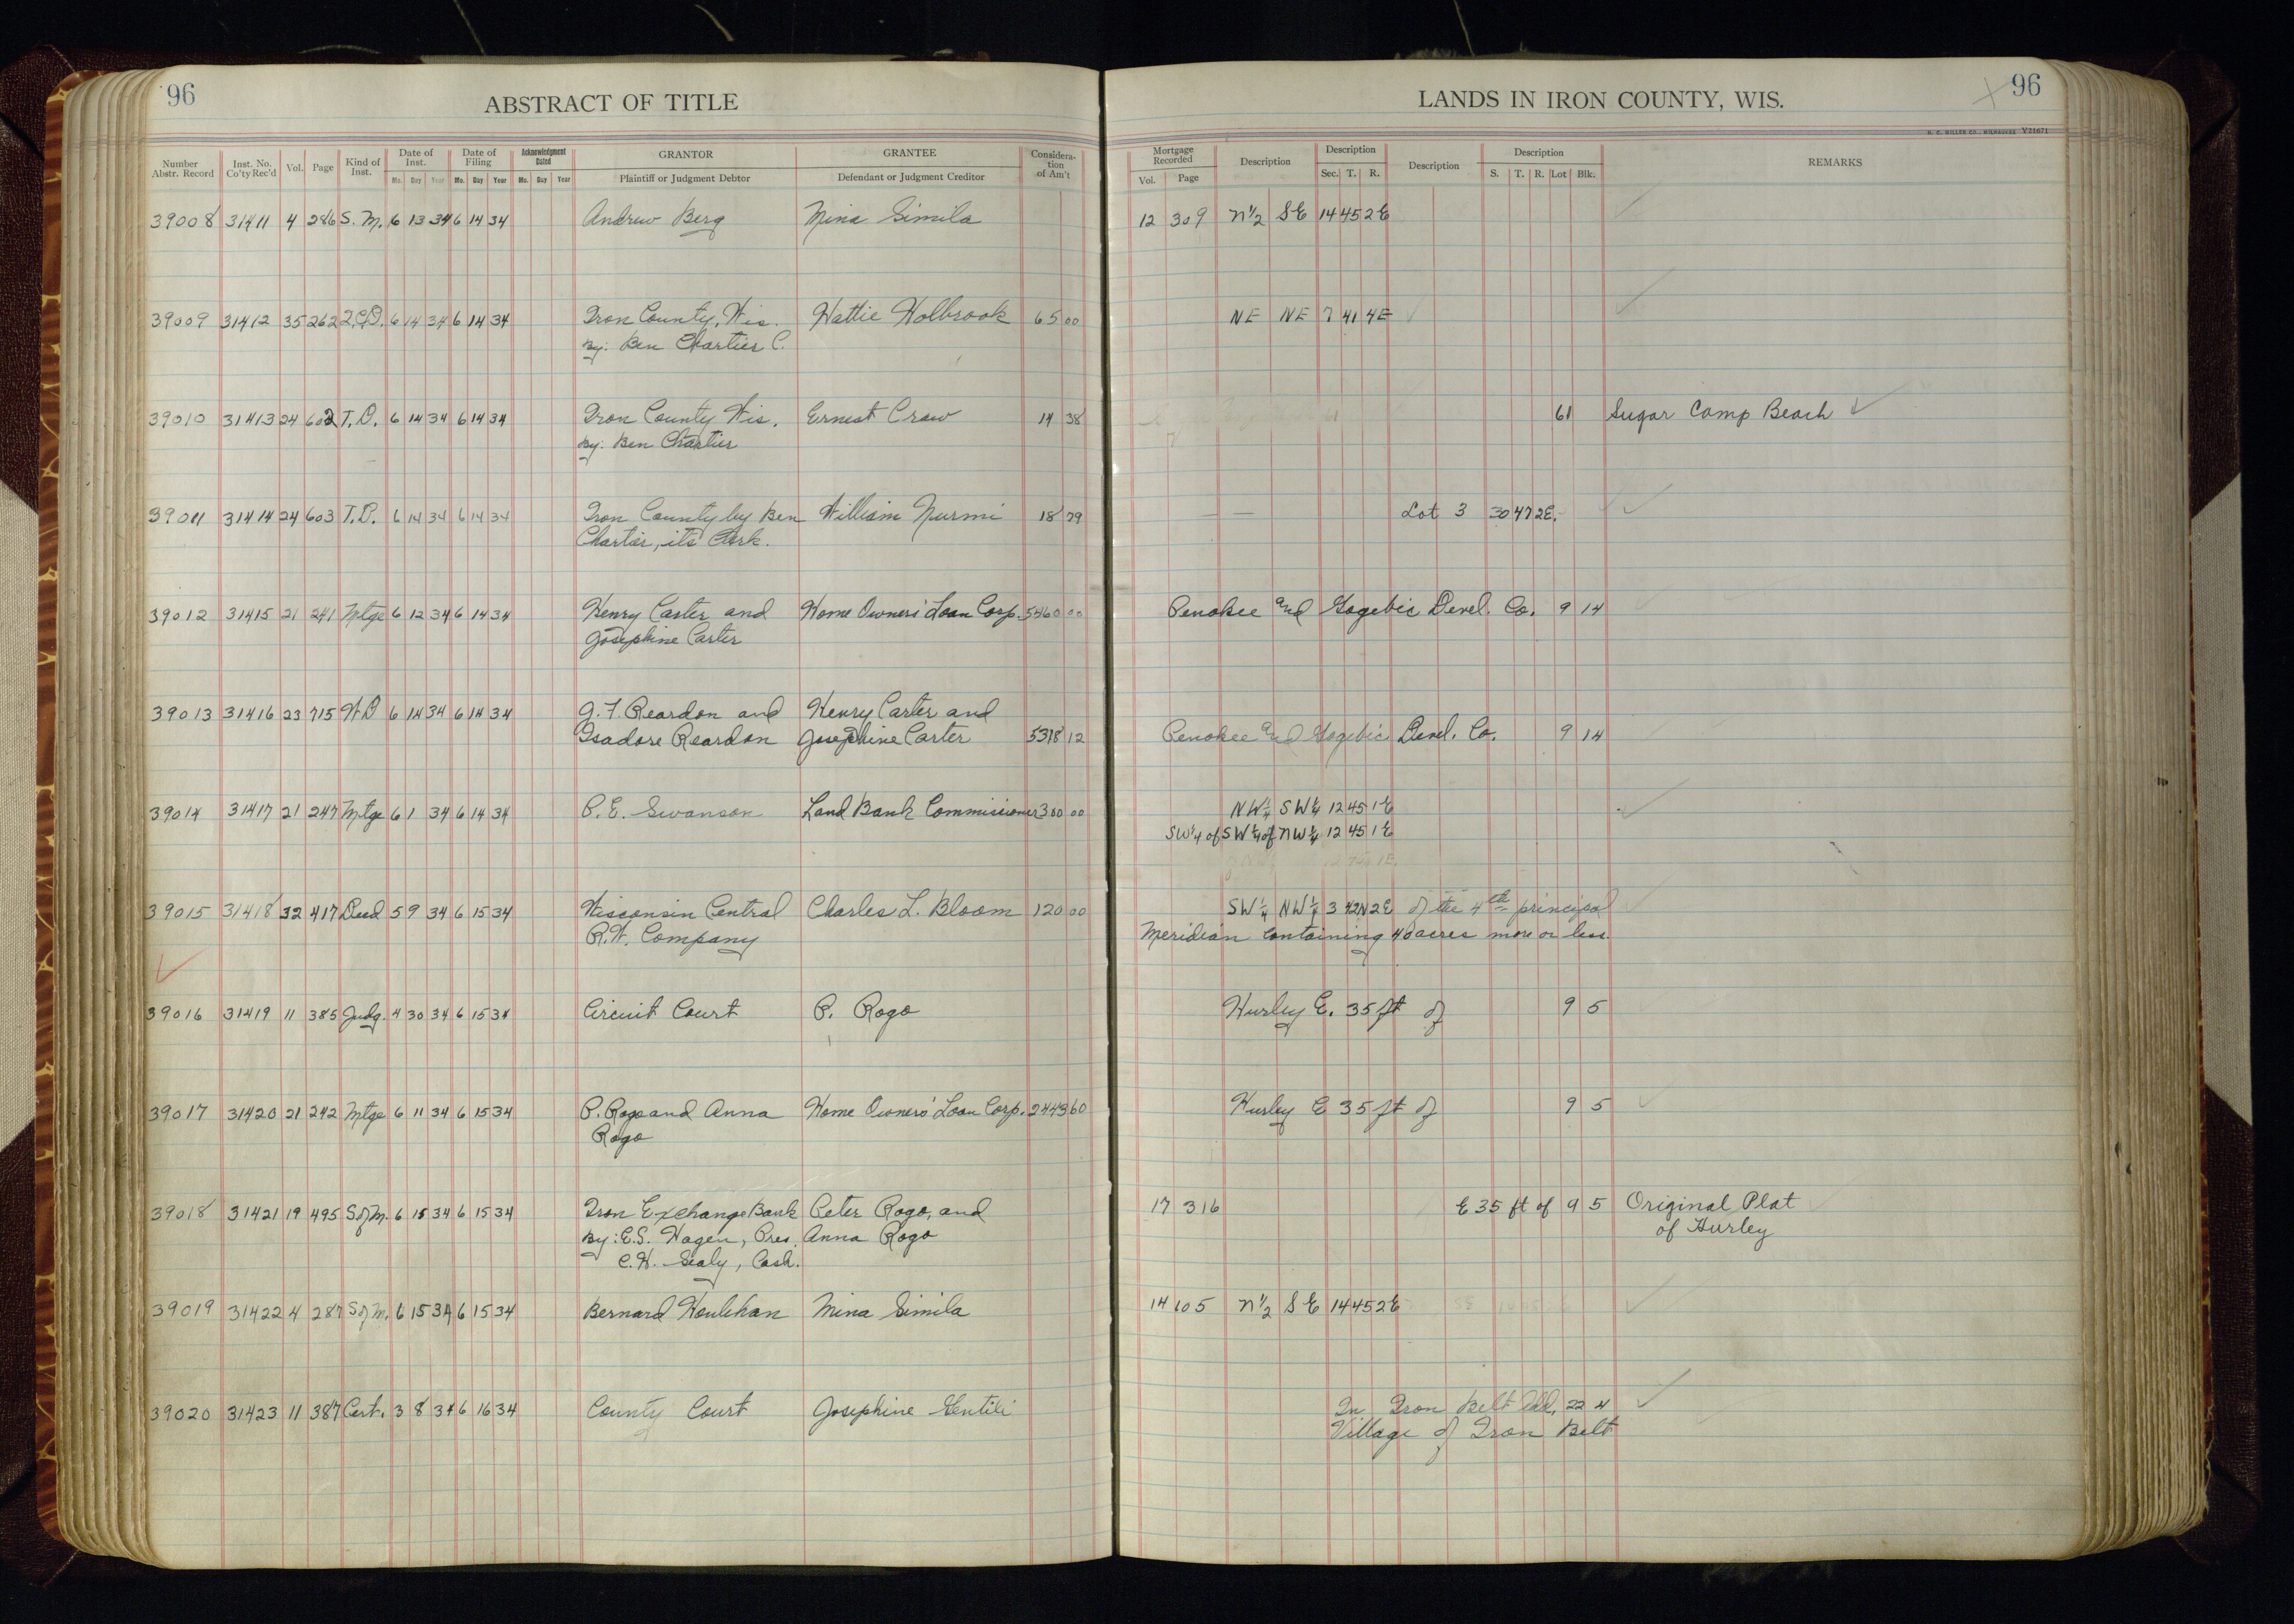 96
ABSTRACT OF TITLE
LANDS IN IRON COUNTY, WIS.
96
H. C. MILLER CO., MILWAUKEE V21671
Number Abstr. Record Inst. No. Co'ty Rec'd Vol. Page Kind of Inst. Date of Inst. Mo. Day Year Date of Filing Mo. Day Year Acknowledgment Dated Mo. Day Year GRANTOR Plaintiff or Judgment Debtor GRANTEE Defendant or Judgment Creditor Considera-tion of Am't Mortgage Recorded Vol. Page Description Description Sec. T. R. Description Description S. T. R. Lot Blk. REMARKS
39008 31411 4 286 S. M. 6 13 34 6 14 34 Andrew Berg Mina Simila 12 309 N½ SE 14 45 2E
39009 31412 35 262 Q.C.D. 6 14 34 6 14 34 Iron County, Wis. Hattie Holbrook 65 00 NE NE 7 41 4E
By: Ben Chartier C.
39010 31413 24 602 T.D. 6 14 34 6 14 34 Iron County Wis. Ernest Craw 14 38 61 Sugar Camp Beach
By: Ben Chartier
39011 31414 24 603 T.D. 6 14 34 6 14 34 Iron County by Ben William Nurmi 18 79 Lot 3 30 47 2E.
Chartier, its Clerk.
39012 31415 21 241 Mtge 6 12 34 6 14 34 Henry Carter and Home Owners' Loan Corp. 5460 00 Penokee and Gogebic Devel. Co. 9 14
Josephine Carter
39013 31416 23 715 W D 6 14 34 6 14 34 G. F. Reardon and Henry Carter and
Isadore Reardon Josephine Carter 5318 12 Penokee and Gogebic Devel. Co. 9 14
39014 31417 21 247 Mtge 6 1 34 6 14 34 P. E. Swanson Land Bank Commissioner 300 00 NW¼ SW¼ 12 45 1E
SW¼ of SW¼ of NW¼ 12 45 1E
39015 31418 32 417 Deed 5 9 34 6 15 34 Wisconsin Central Charles L. Bloom 120 00 SW¼ NW¼ 3 42N 2E of the 4th principal
R.W. Company Meridian containing 40 acres more or less.
39016 31419 11 385 Judg. 4 30 34 6 15 34 Circuit Court P. Rogo Hurley E. 35 ft of 9 5
39017 31420 21 242 Mtge 6 11 34 6 15 34 P. Rogo and Anna Home Owners' Loan Corp. 2443 60 Hurley E 35 ft of 9 5
Rogo
39018 31421 19 495 S of M. 6 15 34 6 15 34 Iron Exchange Bank Peter Rogo, and 17 316 E 35 ft of 9 5 Original Plat
By: E.S. Hagen, Pres. Anna Rogo of Hurley
C.H. Sealy, Cash.
39019 31422 4 287 S of M. 6 15 34 6 15 34 Bernard Houlehan Mina Simila 14 105 N½ SE 14 45 2E
39020 31423 11 387 Cert. 3 8 34 6 16 34 County Court Josephine Gentili In Iron Belt Add. 22 4
Village of Iron Belt